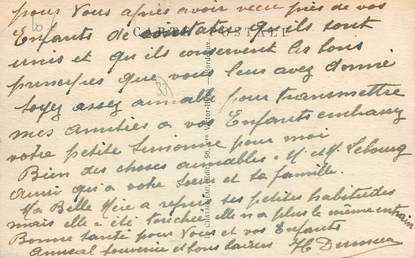 pour Vous après avoir vecu près de vos
Enfants de constater qu'ils sont
unis et qu'ils conservent les bons
principes que vous leur avez donné
Soyez assez aimable pour transmettre
mes amitiés a vos Enfants embrassez
votre petite Simonne pour moi
Bien des choses aimables a Mr et Me Lebourg
ainsi qu'a votre Sœur et Sa famille.
Ma Belle Mère a repris ses petites habitudes
mais elle a été touchée elle n'a plus le même entrain
Bonne Santé pour Vous et vos Enfants
Amical Souvenir et bons baisers